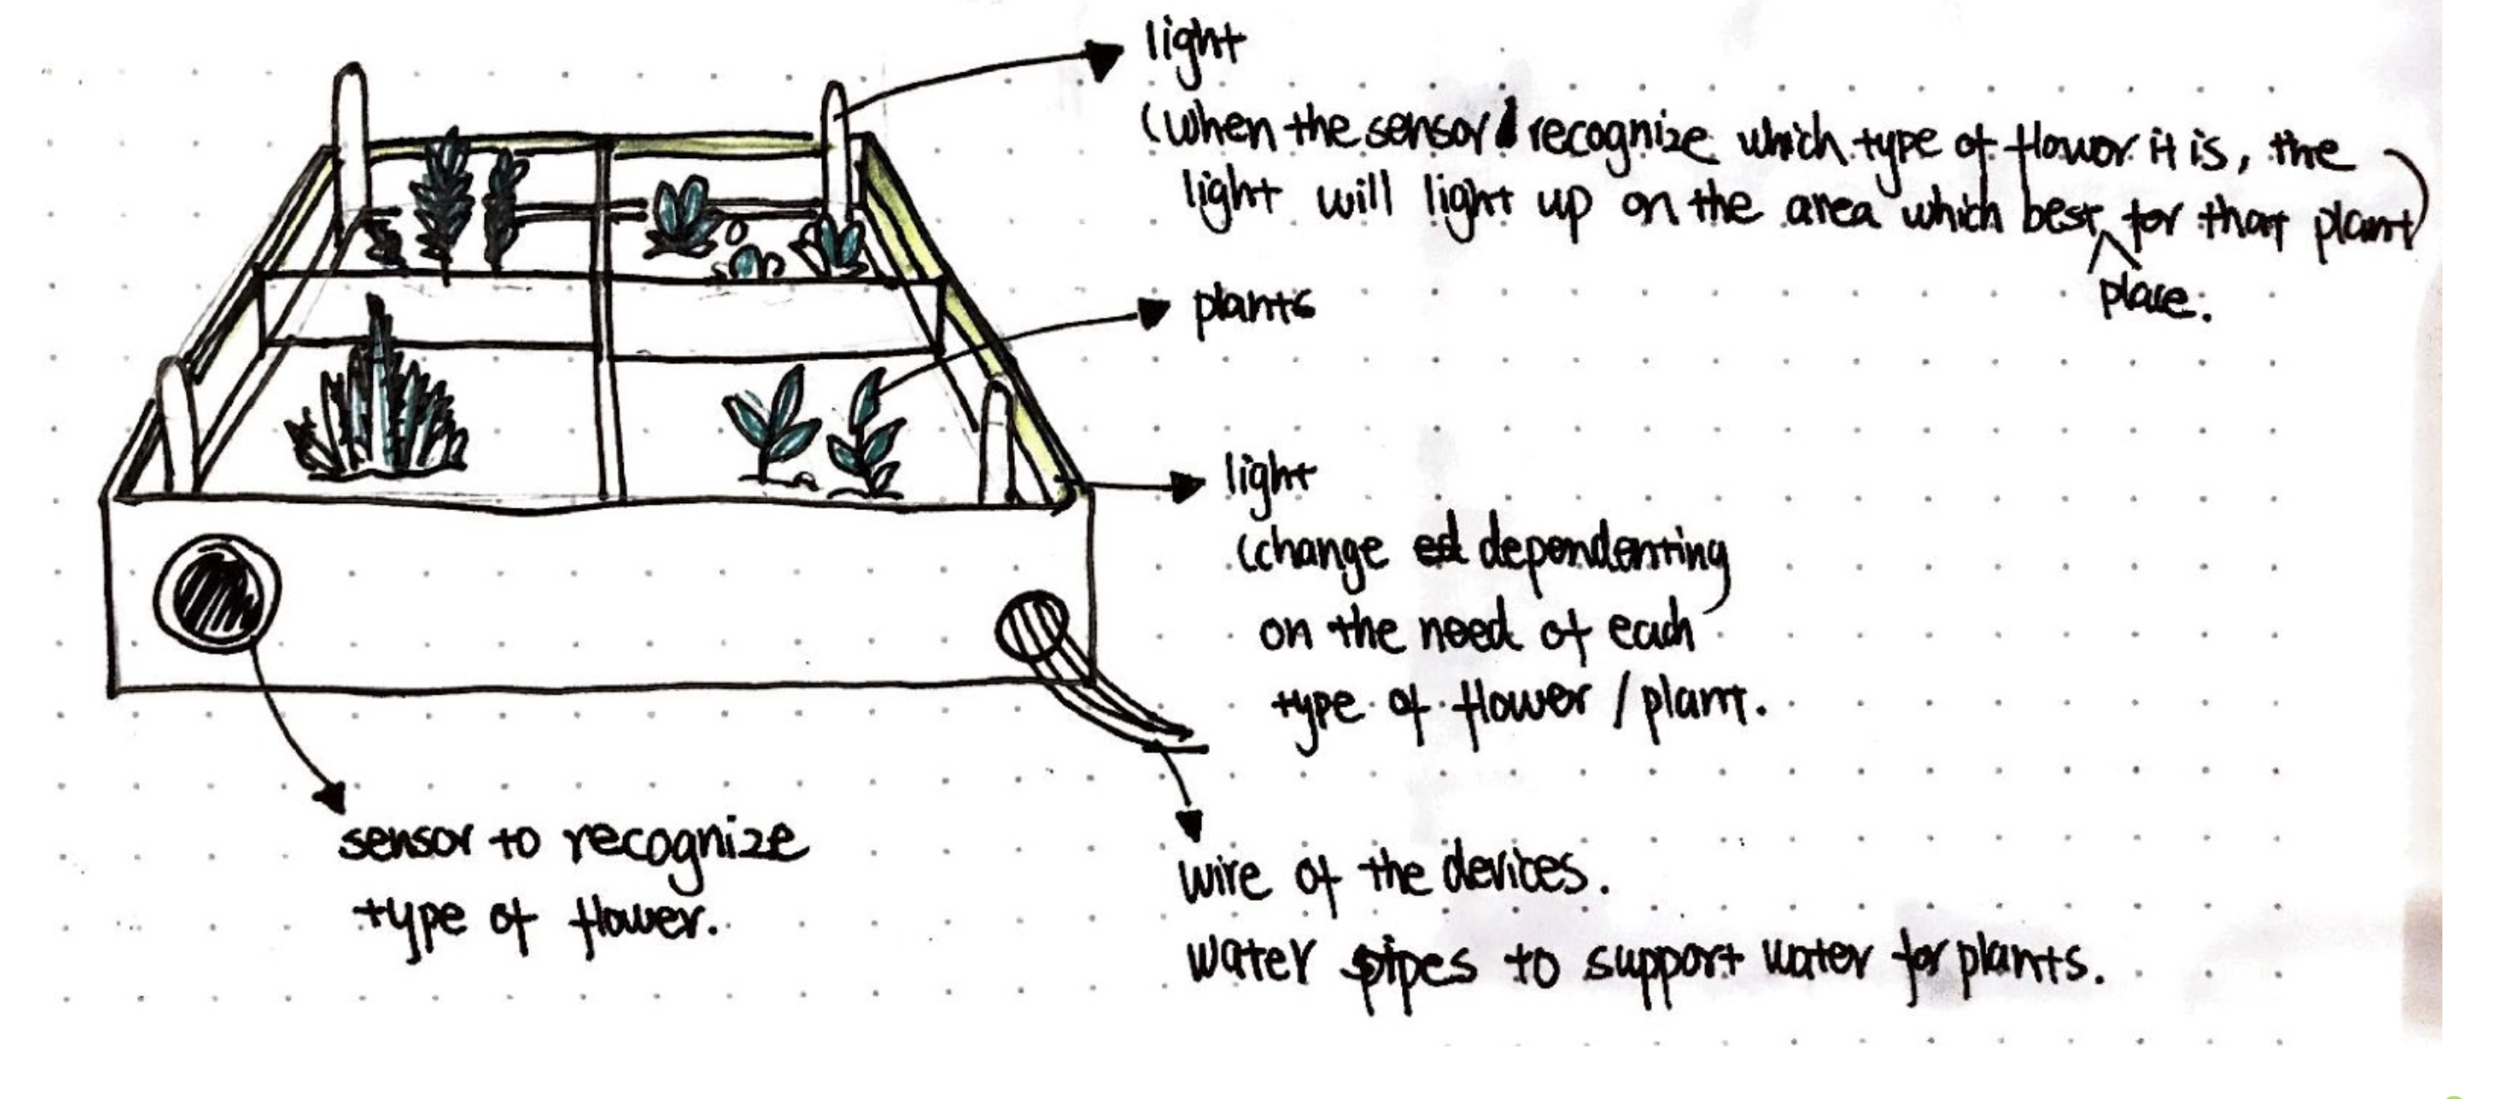 light
(when the sensor recognize which type of flower it is, the
light will light up on the area which best place for that plant)
plants
light
(change dependenting
on the need of each
type of flower / plant.
sensor to recognize
type of flower.
wire of the devices.
water pipes to support water for plants.